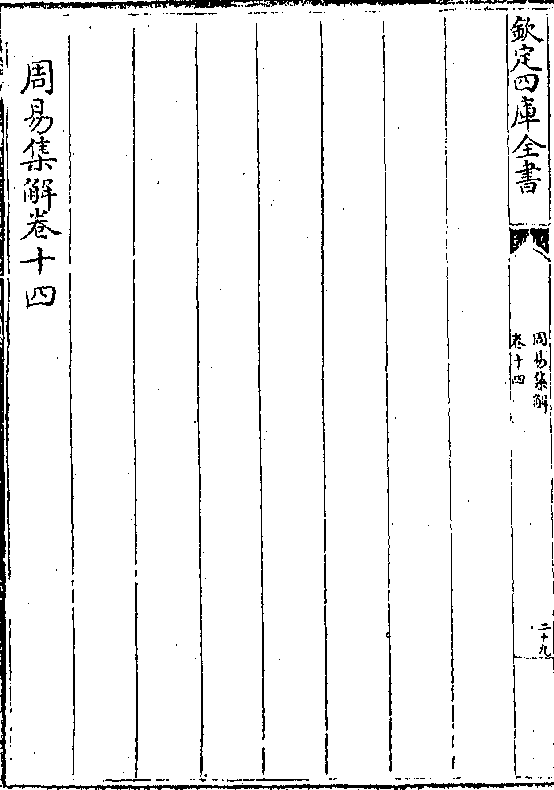 欽定四庫全書
周易集解
卷十四
二十九
周易集解卷十四